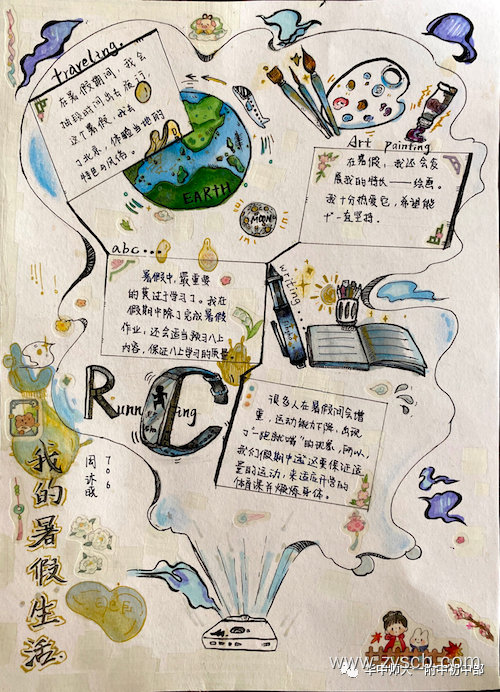 traveling.
在暑假期间，我会
抽段时间出去旅行，
这个暑假，我去
了北京，体验当地的
特色与风俗。
EARTH
MOON
Art painting
在暑假，我还会发
展我的特长——绘画。
我十分热爱它，希望能
一直坚持。
abc...
暑假中，最重要
的莫过于学习了。我在
假期中除了完成暑假
作业，还会适当预习八上
内容，保证八上学习的质量。
writing...
Running
很多人在暑假间会增
重，运动能力下降，出现
了“一跑就喘”的现象，所以，
我们假期中适
量的运动，来适应开学的
体育课并锻炼身体。
706
周
我的暑假生活
www.zyscb.com